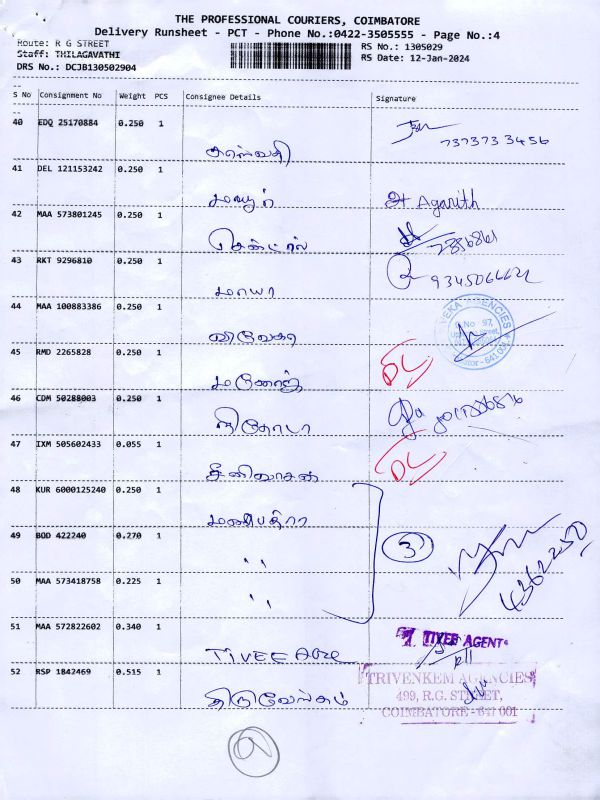 THE PROFESSIONAL COURIERS, COIMBATORE
Delivery Runsheet - PCT - Phone No.:0422-3505555 - Page No.:4
Route: R G STREET
RS No.: 1305029
Staff: THILAGAVATHI
RS Date: 12-Jan-2024
DRS No.: DCJB130502904
S No Consignment No Weight PCS Consignee Details Signature
40 EDQ 25170884 0.250 1
737373 3456
கலைவதி
41 DEL 121153242 0.250 1
மயூர் Agarith
42 MAA 573801245 0.250 1
சென்ட்ரல்
43 RKT 9296810 0.250 1
மாயா
44 MAA 100883386 0.250 1
விவேகா
No 97,
AGENCIES
641 001
45 RMD 2265828 0.250 1
மனோஜ் DL
46 CDM 50288003 0.250 1
47 IXM 505602433 0.055 1
சீனிவாசன் DL
48 KUR 6000125240 0.250 1
49 BOD 422240 0.270 1
" 3
50 MAA 573418758 0.225 1
"
51 MAA 572822602 0.340 1
TIVEE AGENT
TIVEE
52 RSP 1842469 0.515 1
TRIVENKEM AGENCIES
499, R.G. STREET,
COIMBATORE - 641 001